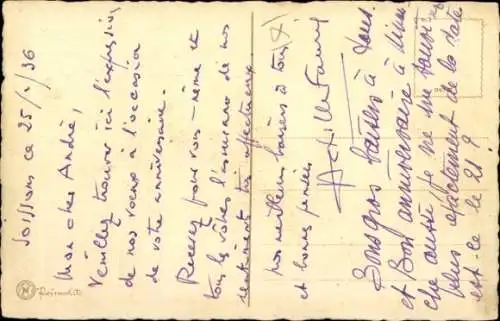 Soissons ce 25/1/36
Mon cher André,
Veuillez trouver ici l'expression
de nos vœux à l'occasion
de votre anniversaire.
Recevez pour vous-même et
tous les vôtres l'assurance de nos
sentiments très affectueux
nos meilleurs baisers à tous
et bonnes pensées
Bons gros baisers à tous
et Bon anniversaire à
che aussi je ne me souviens
plus exactement de la date
est-ce le 21 ?